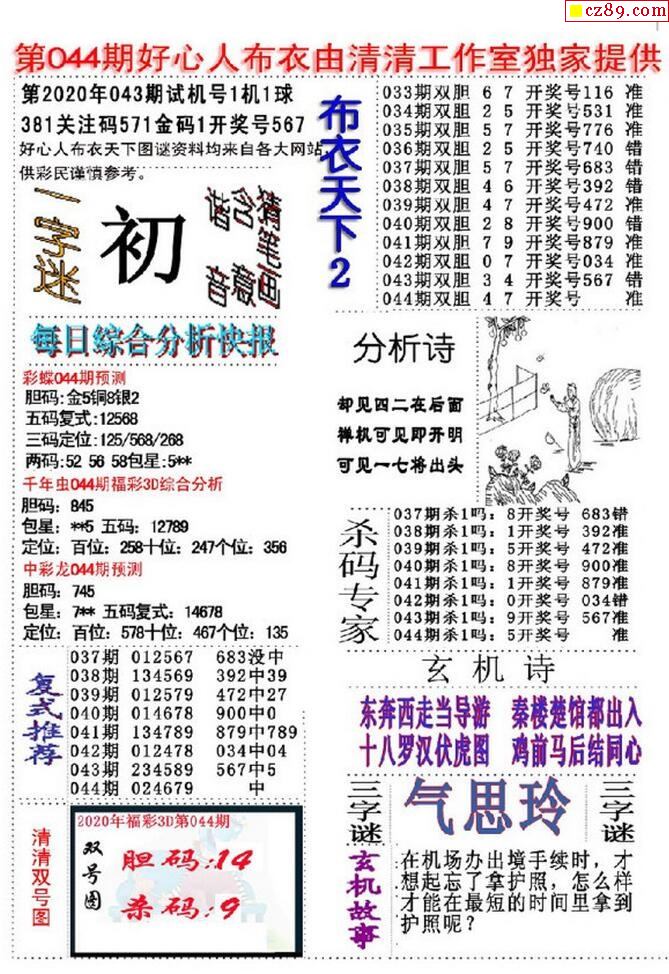 cz89.com
第044期好心人布衣由清清工作室独家提供
第2020年043期试机号1机1球
381关注码571金码1开奖号567
好心人布衣天下图谜资料均来自各大网站,
供彩民谨慎参考。
一字迷
初
猜笔画
含意
谐音
布衣天下2
033期双胆 6 7 开奖号116 准
034期双胆 2 5 开奖号531 准
035期双胆 5 7 开奖号776 准
036期双胆 2 5 开奖号740 错
037期双胆 5 7 开奖号683 错
038期双胆 4 6 开奖号392 错
039期双胆 4 7 开奖号472 准
040期双胆 2 8 开奖号900 错
041期双胆 7 9 开奖号879 准
042期双胆 0 7 开奖号034 准
043期双胆 3 4 开奖号567 错
044期双胆 4 7 开奖号 准
每日综合分析快报
彩蝶044期预测
胆码:金5铜8银2
五码复式:12568
三码定位:125/568/268
两码:52 56 58包星:5**
千年虫044期福彩3D综合分析
胆码: 845
包星: **5 五码: 12789
定位: 百位: 258十位: 247个位: 356
中彩龙044期预测
胆码: 745
包星: 7** 五码复式: 14678
定位: 百位: 578十位: 467个位: 135
分析诗
却见四二在后面
禅机可见即开明
可见一七将出头
杀码专家
037期杀1吗: 8开奖号 683错
038期杀1吗: 1开奖号 392准
039期杀1吗: 5开奖号 472准
040期杀1吗: 8开奖号 900准
041期杀1吗: 1开奖号 879准
042期杀1吗: 0开奖号 034错
043期杀1吗: 9开奖号 567准
044期杀1吗: 5开奖号 准
复式推荐
037期 012567 683没中
038期 134569 392中39
039期 012579 472中27
040期 014678 900中0
041期 134789 879中789
042期 012478 034中04
043期 234589 567中5
044期 024679 中
玄机诗
东奔西走当导游 秦楼楚馆都出入
十八罗汉伏虎图 鸡前马后结同心
三字谜
气思玲
三字谜
清清双号图
2020年福彩3D第044期
双号图
胆码:14
杀码:9
玄机故事
在机场办出境手续时,才
想起忘了拿护照,怎么样
才能在最短的时间里拿到
护照呢?